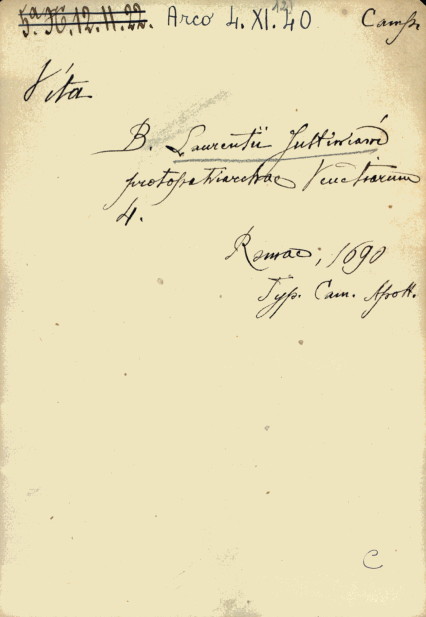 5.a H. 12. 11. 22. Arco 4. XI. 40 (12) Camp.
Vita
B. Laurentii Justiniani
protopatriarchae Venetiarum
4.
Romae, 1690
Typ. Cam. Apost.
C